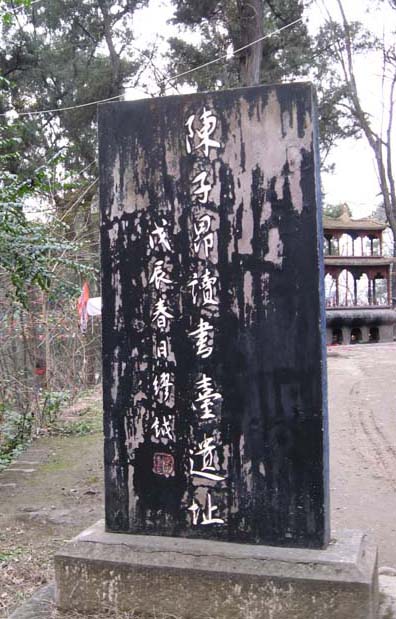 陳子昂讀書臺遺址
戊辰春月鏐鉞